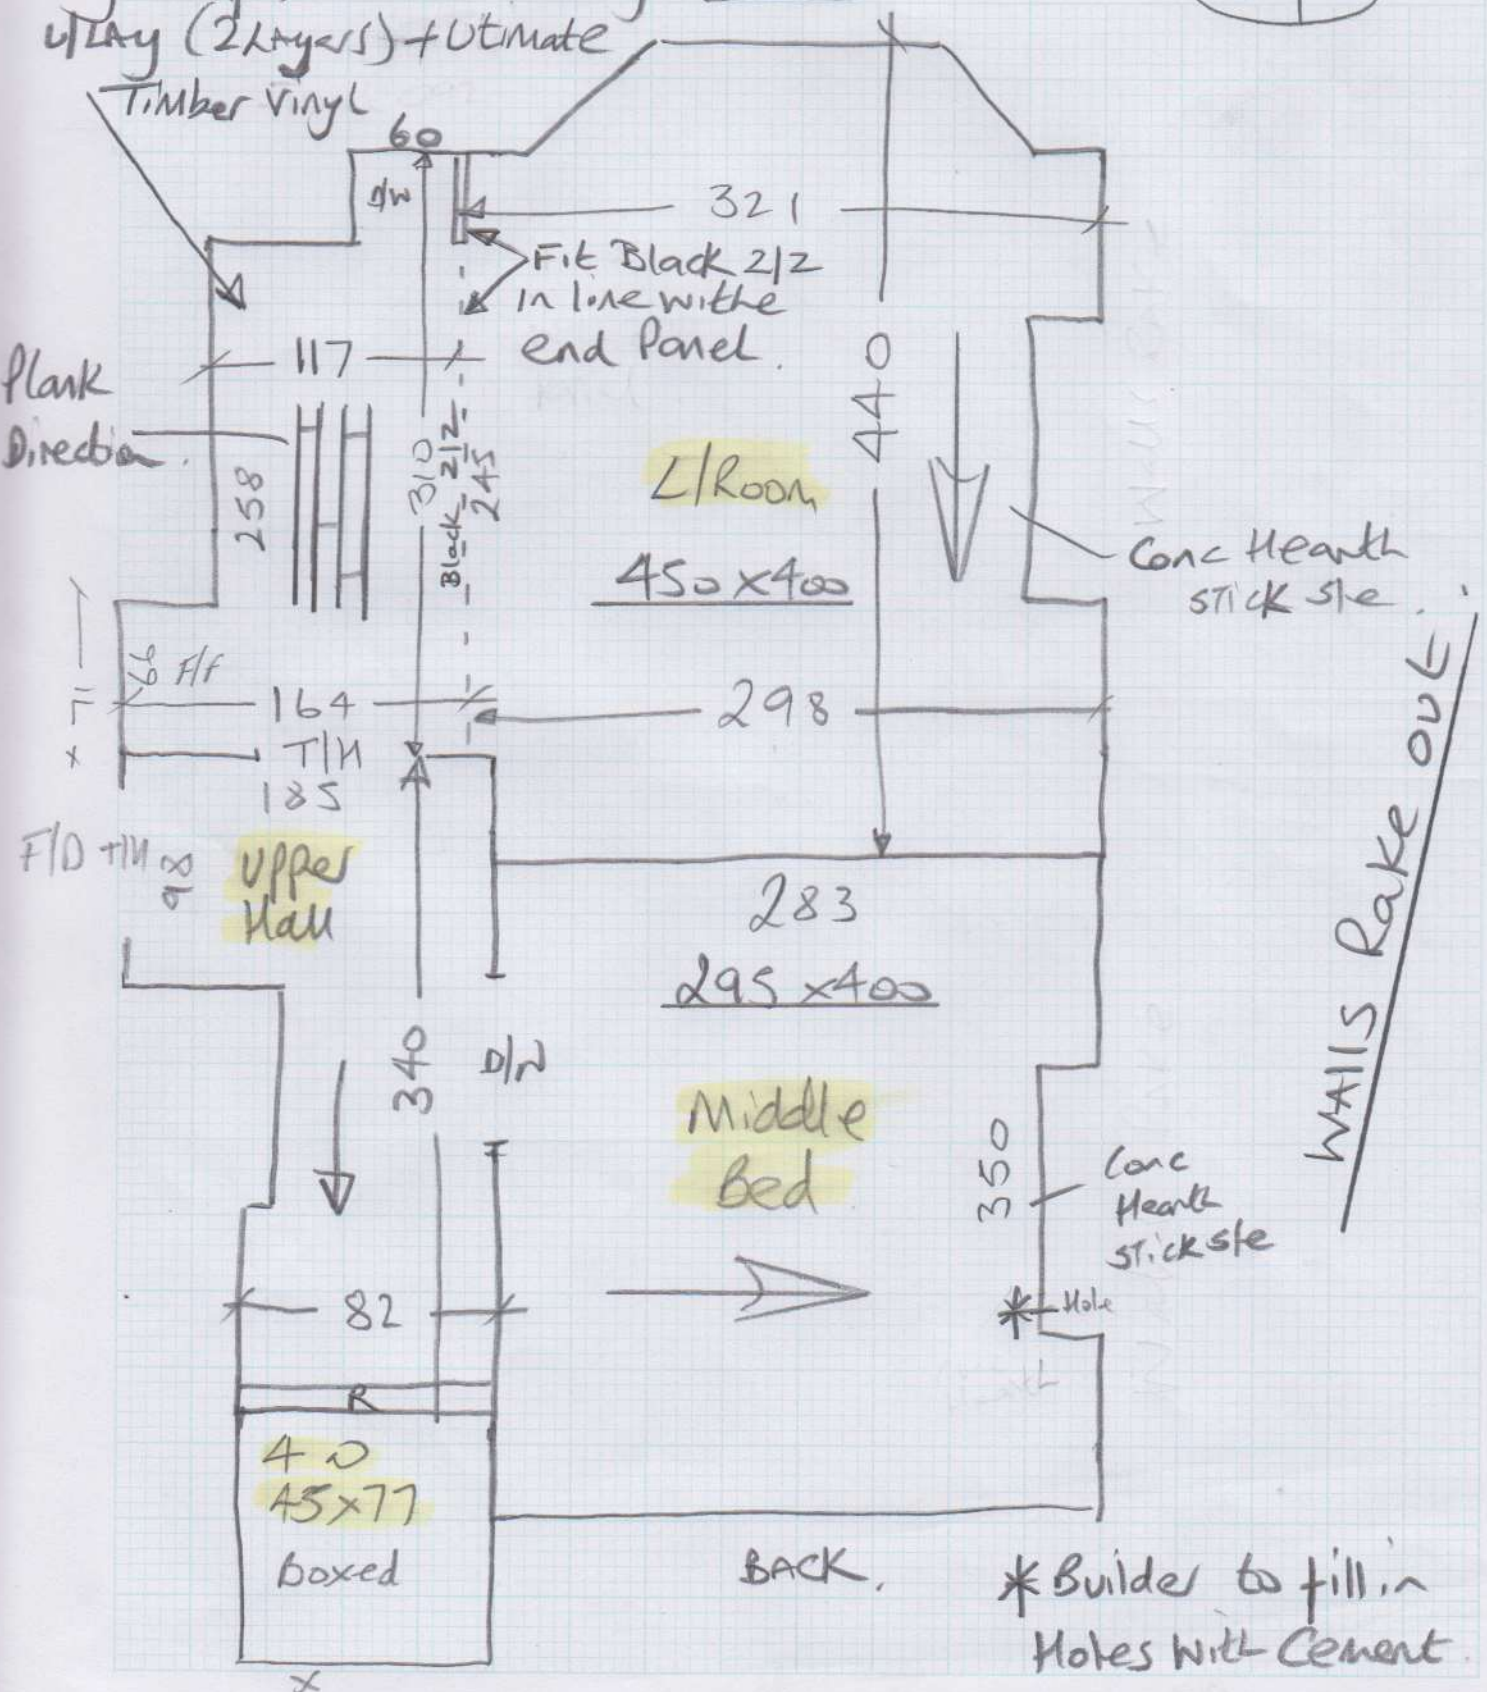 U/Lay (2 Layers) + Utimate
Timber Vinyl
60
D/W
321
Fit Black 2/2
in line withe
end Panel.
117
Plank
Direction.
258
310
Black 2/2
245
440
L/Room
450 x 400
Conc Hearth
STICK S/e.
66 F/f
x 71
164
298
T/H
185
F/D T/H
98
Upper
Hall
283
295 x 400
340
D/W
Middle
Bed
350
Conc
Hearth
STICK S/e
* Hole
WAlls Rake out
82
R
45 x 77
boxed
BACK.
* Builder to fill in
Holes With Cement.
x